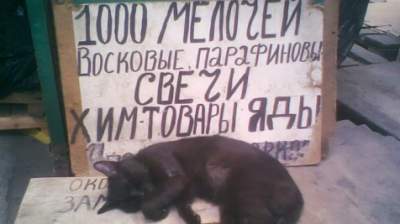 1000 МЕЛОЧЕЙ
ВОСКОВЫЕ, ПАРАФИНОВЫ
СВЕЧИ
ХИМ-ТОВАРЫ ЯДЫ
ОКО
ЗАМ